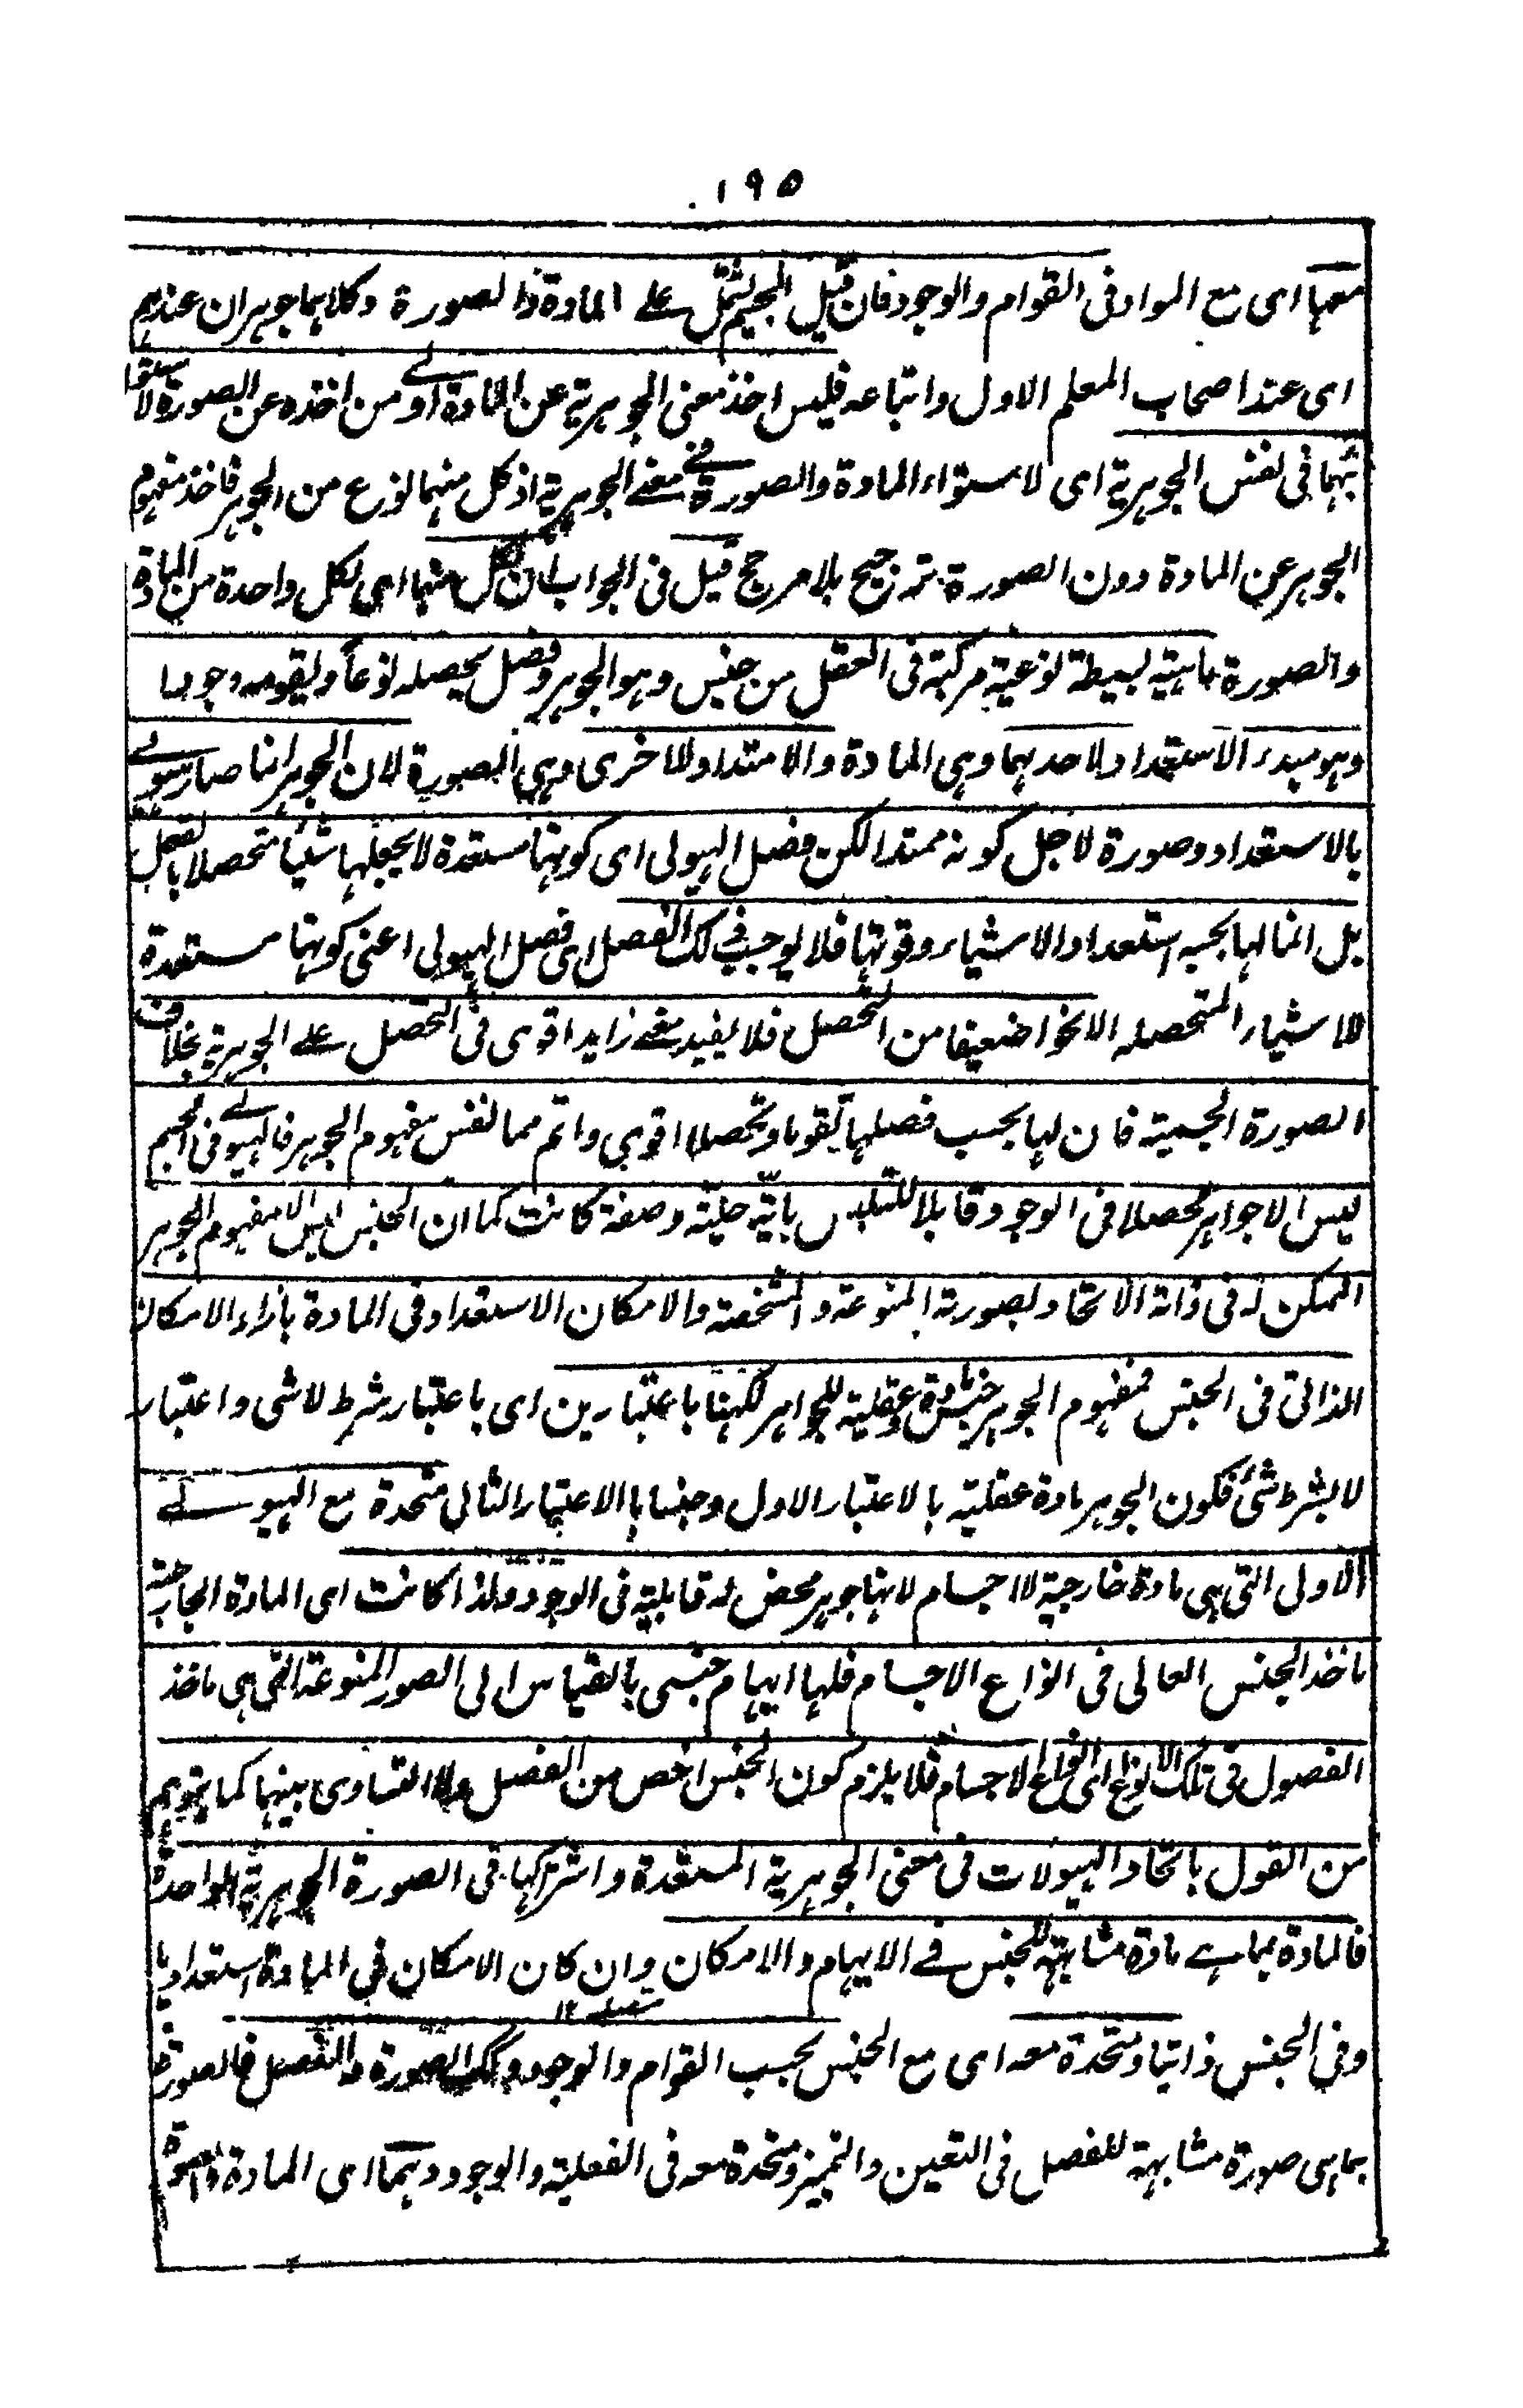 ١٩٥
معها اى مع المواد فى القوام والوجود فان قيل الجسم يشتمل على المادة والصورة وكلاهما جوهران عندهم
اى عند اصحاب المعلم الاول واتباعه فليس اخذ معنى الجوهرية عن المادة اولى من اخذه عن الصورة لاستوا
ئهما فى نفس الجوهرية اى لاستواء المادة والصورة فى معنى الجوهرية اذ كل منهما نوع من الجوهر فاخذ مفهوم
الجوهر عن المادة دون الصورة ترجيح بلا مرجح قيل فى الجواب ان لكل منهما اى لكل واحدة من المادة
والصورة ماهية بسيطة نوعية مركبة فى العقل من جنس وهو الجوهر وفصل يحصله نوعا ويقومه وجودا
وهو مبدء الاستعداد لاحدهما وهى المادة والامتداد للاخرى وهى الصورة لان الجوهر انما صار هيولى
بالاستعداد وصورة لاجل كونه ممتدا لكن فصل الهيولى اى كونها مستعدة لا يجعلها شيئا متحصلا بالفعل
بل انما لها بحسبه استعداد الاشياء وقوتها فلا يوجب ذلك الفصل اى فصل الهيولى اعنى كونها مستعدة
للاشياء المتحصله الا نحوا ضعيفا من التحصل فلا يفيد معنى زايدا قوى فى التحصل على الجوهرية بخلاف
الصورة الجسمية فان لها بحسب فصلها تقوما وتحصلا اقوى واتم مما لنفس مفهوم الجوهر فالهيولى فى الجسم
ليس الا جواهر محصلا فى الوجود قابلا للتلبس باية حلية وصفة كانت كما ان الجنس ليس الا مفهوم الجوهر
الممكن له فى ذاته الاتحاد بصورته المنوعة والمشخصة والامكان الاستعداد فى المادة بازاء الامكان
الذاتى فى الجنس فمفهوم الجوهر جنس ومادة عقلية للجواهر لكنها باعتبارين اى باعتبار شرط لا شى واعتبار
لا بشرط شئ فكون الجوهر مادة عقلية بالاعتبار الاول وجنسا باالاعتبار الثانى متحدة مع الهيولى
الاولى التى هى مادة خارجية لاجسام لانها جوهر محض له قابلية فى الوجود ولذا كانت اى المادة الخارجية
ماخذ الجنس العالى فى انواع الاجسام فلها ابهام جنسى بالقياس الى الصور المنوعة التى هى ماخذ
الفصول فى تلك الانواع اى انواع الاجسام فلا يلزم كون الجنس اخص من الفصل ولا التساوى بينهما كما يتوهم
من القول باتحاد الهيولات فى معنى الجوهرية المستعدة واشتراكها فى الصورة الجوهرية الواحدة
فالمادة بما هى مادة مشابهة للجنس فى الابهام والامكان وان كان الامكان فى المادة استعداديا
وفى الجنس ذاتيا ومتحدة معه اى مع الجنس بحسب القوام والوجود وكذلك الصورة والفصل فالصورة
بما هى صورة مشابهة للفصل فى التعين والتميز ومتحدة معه فى الفعلية والوجود وهما اى المادة والصورة